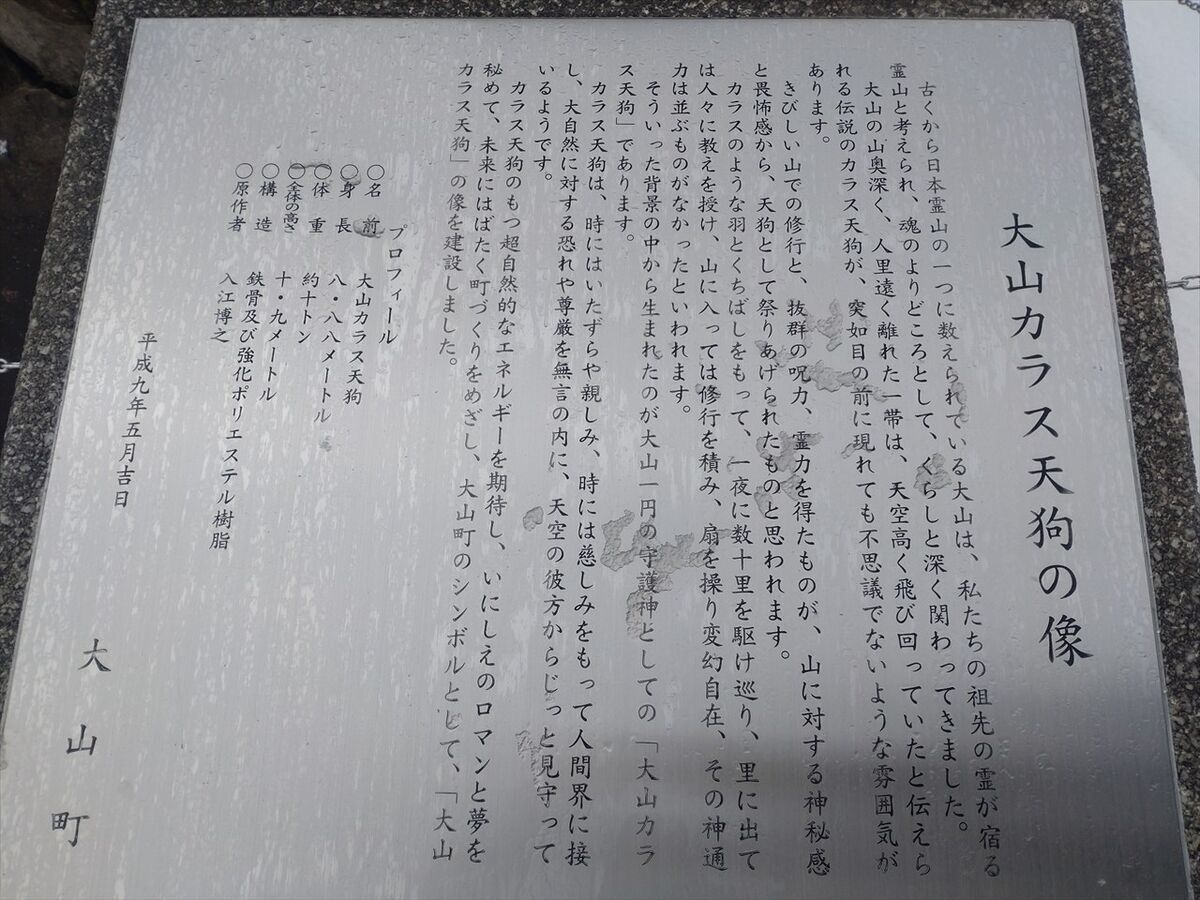 大山カラス天狗の像
古くから日本霊山の一つに数えられている大山は、私たちの祖先の霊が宿る
霊山と考えられ、魂のよりどころとして、くらしと深く関わってきました。
大山の山奥深く、人里遠く離れた一帯は、天空高く飛び回っていたと伝えら
れる伝説のカラス天狗が、突如目の前に現れても不思議でないような雰囲気が
あります。
きびしい山での修行と、抜群の呪力、霊力を得たものが、山に対する神秘感
と畏怖感から、天狗として祭りあげられたものと思われます。
カラスのような羽とくちばしをもって、一夜に数十里を駆け巡り、里に出て
は人々に教えを授け、山に入っては修行を積み、扇を操り変幻自在、その神通
力は並ぶものがなかったといわれます。
そういった背景の中から生まれたのが大山一円の守護神としての「大山カラ
ス天狗」であります。
カラス天狗は、時にはいたずらや親しみ、時には慈しみをもって人間界に接
し、大自然に対する恐れや尊厳を無言の内に、天空の彼方からじっと見守って
いるようです。
カラス天狗のもつ超自然的なエネルギーを期待し、いにしえのロマンと夢を
秘めて、未来にはばたく町づくりをめざし、大山町のシンボルとして、「大山
カラス天狗」の像を建設しました。
プロフィール
○名前 大山カラス天狗
○身長 八・八八メートル
○体重 約十トン
○全体の高さ 十・九メートル
○構造 鉄骨及び強化ポリエステル樹脂
○原作者 入江博之
平成九年五月吉日
大山町